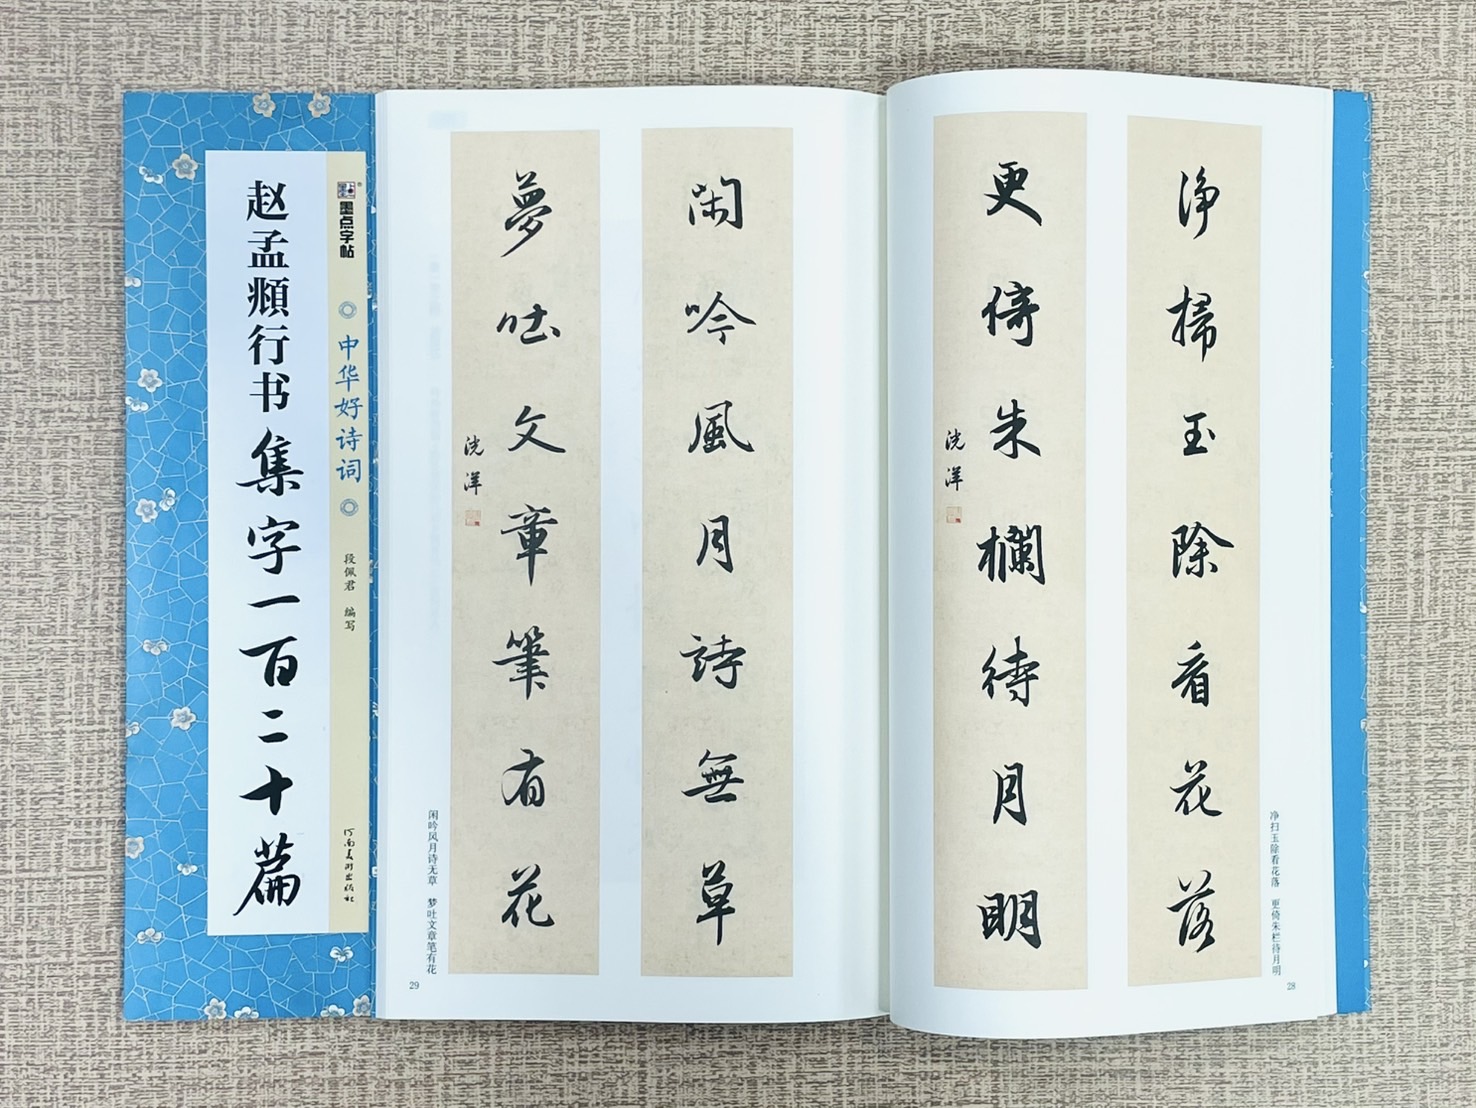 赵孟頫行书集字一百二十篇
墨点字帖
中华好诗词
段佩君 编写
河南美术出版社
净掃玉除看花落
更倚朱欄待月明
洗洋
净扫玉除看花落 更倚朱栏待月明
28
闲吟風月詩無草
夢吐文章筆有花
洗洋
闲吟风月诗无草 梦吐文章笔有花
29